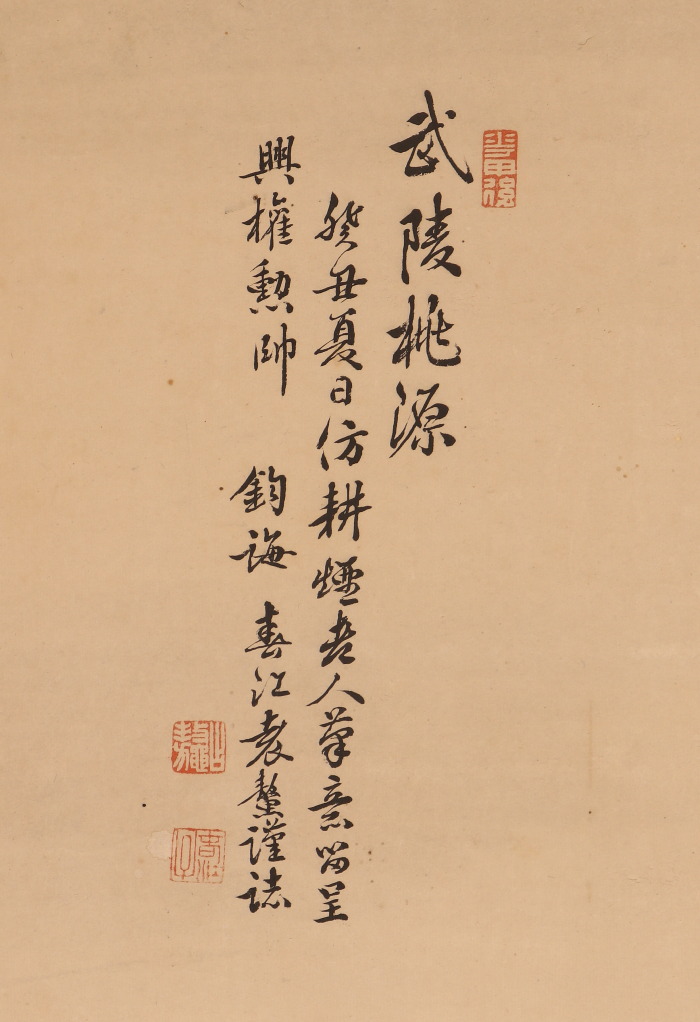 武陵桃源
癸丑夏日仿耕煙老人筆意留呈
興權勲帥 鈞誨 春江袁鰲謹誌